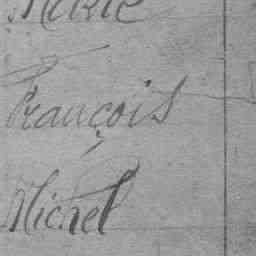 Marie
François
Michel